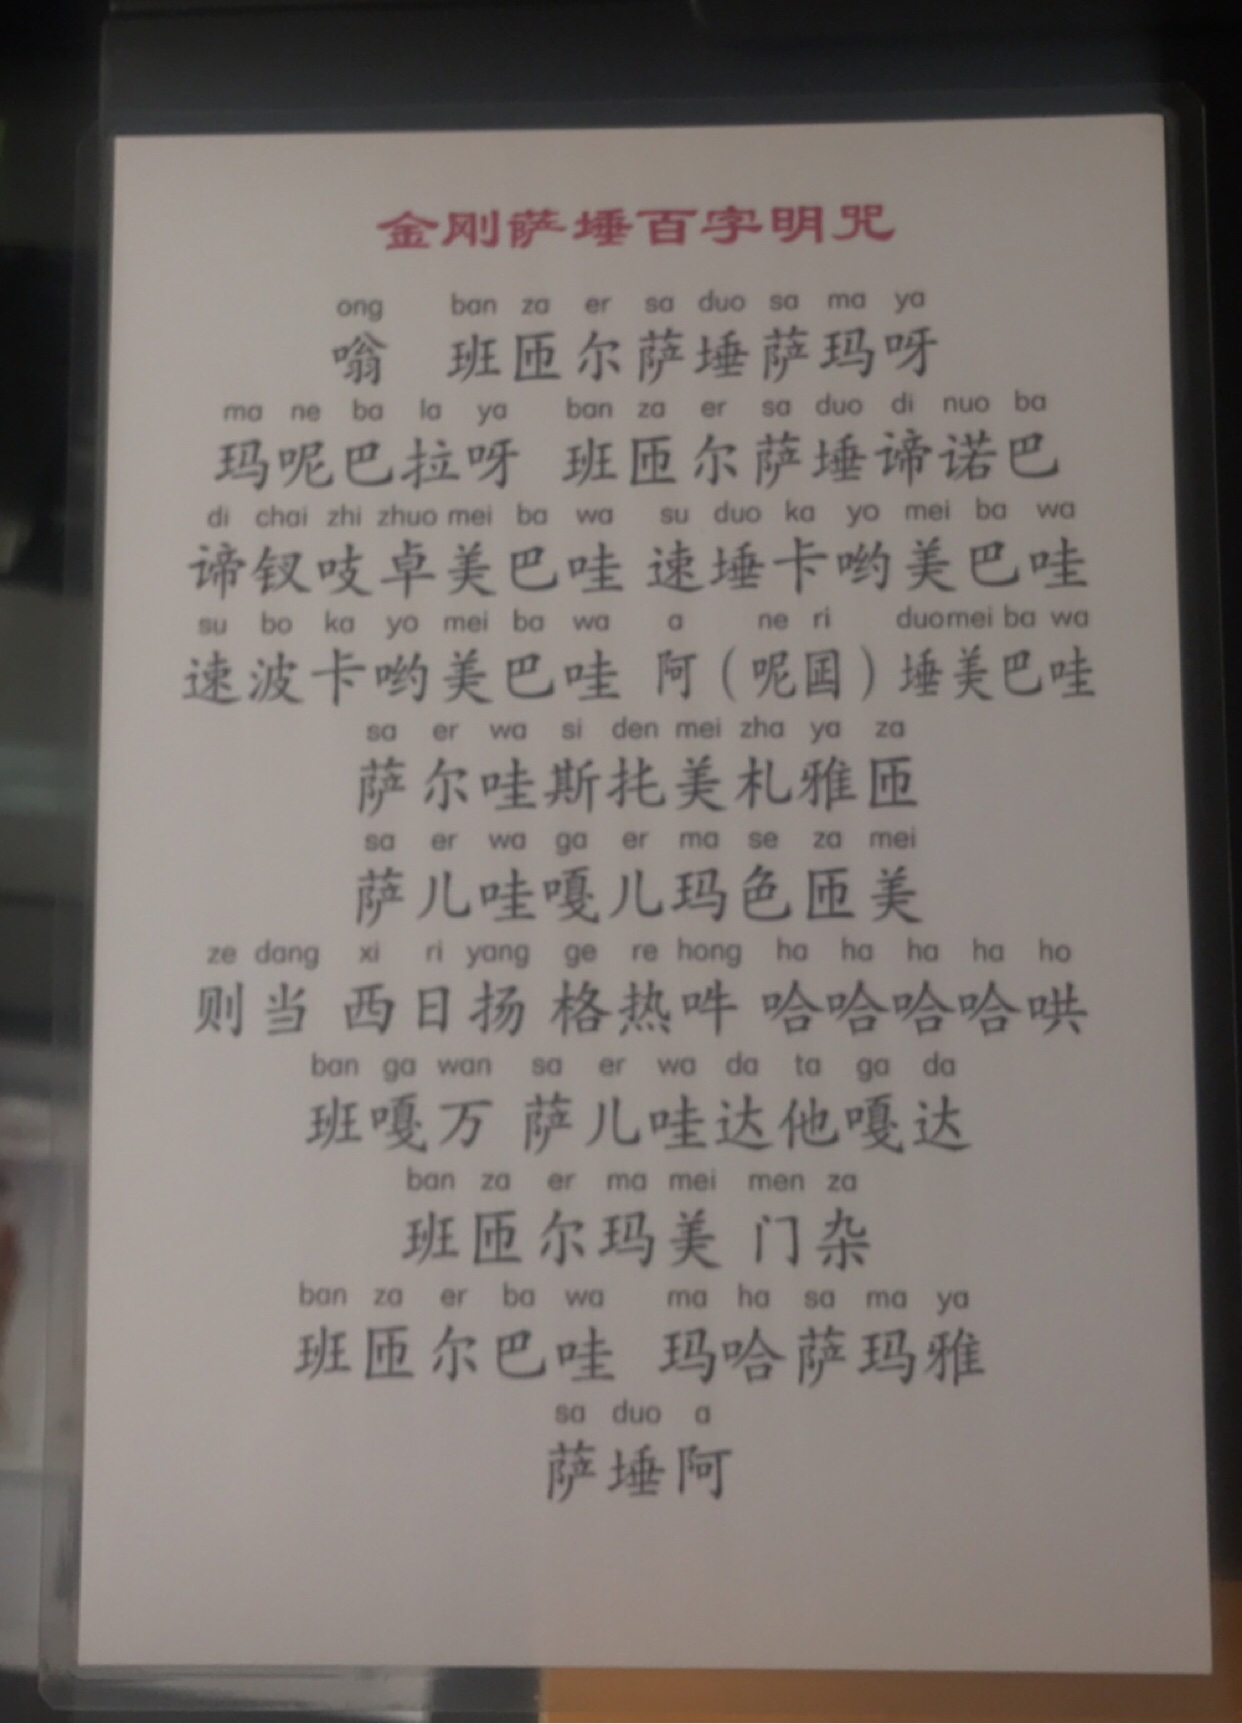 金刚萨埵百字明咒
ong ban za er sa duo sa ma ya
嗡 班匝尔萨埵萨玛呀
ma ne ba la ya ban za er sa duo di nuo ba
玛呢巴拉呀 班匝尔萨埵谛诺巴
di chai zhi zhuo mei ba wa su duo ka yo mei ba wa
谛钗吱卓美巴哇 速埵卡哟美巴哇
su bo ka yo mei ba wa a ne ri duo mei ba wa
速波卡哟美巴哇 阿（呢囸）埵美巴哇
sa er wa si den mei zha ya za
萨尔哇斯扥美札雅匝
sa er wa ga er ma se za mei
萨儿哇嘎儿玛色匝美
ze dang xi ri yang ge re hong ha ha ha ha ho
则当 西日扬 格热吽 哈哈哈哈哄
ban ga wan sa er wa da ta ga da
班嘎万 萨儿哇达他嘎达
ban za er ma mei men za
班匝尔玛美 门杂
ban za er ba wa ma ha sa ma ya
班匝尔巴哇 玛哈萨玛雅
sa duo a
萨埵阿